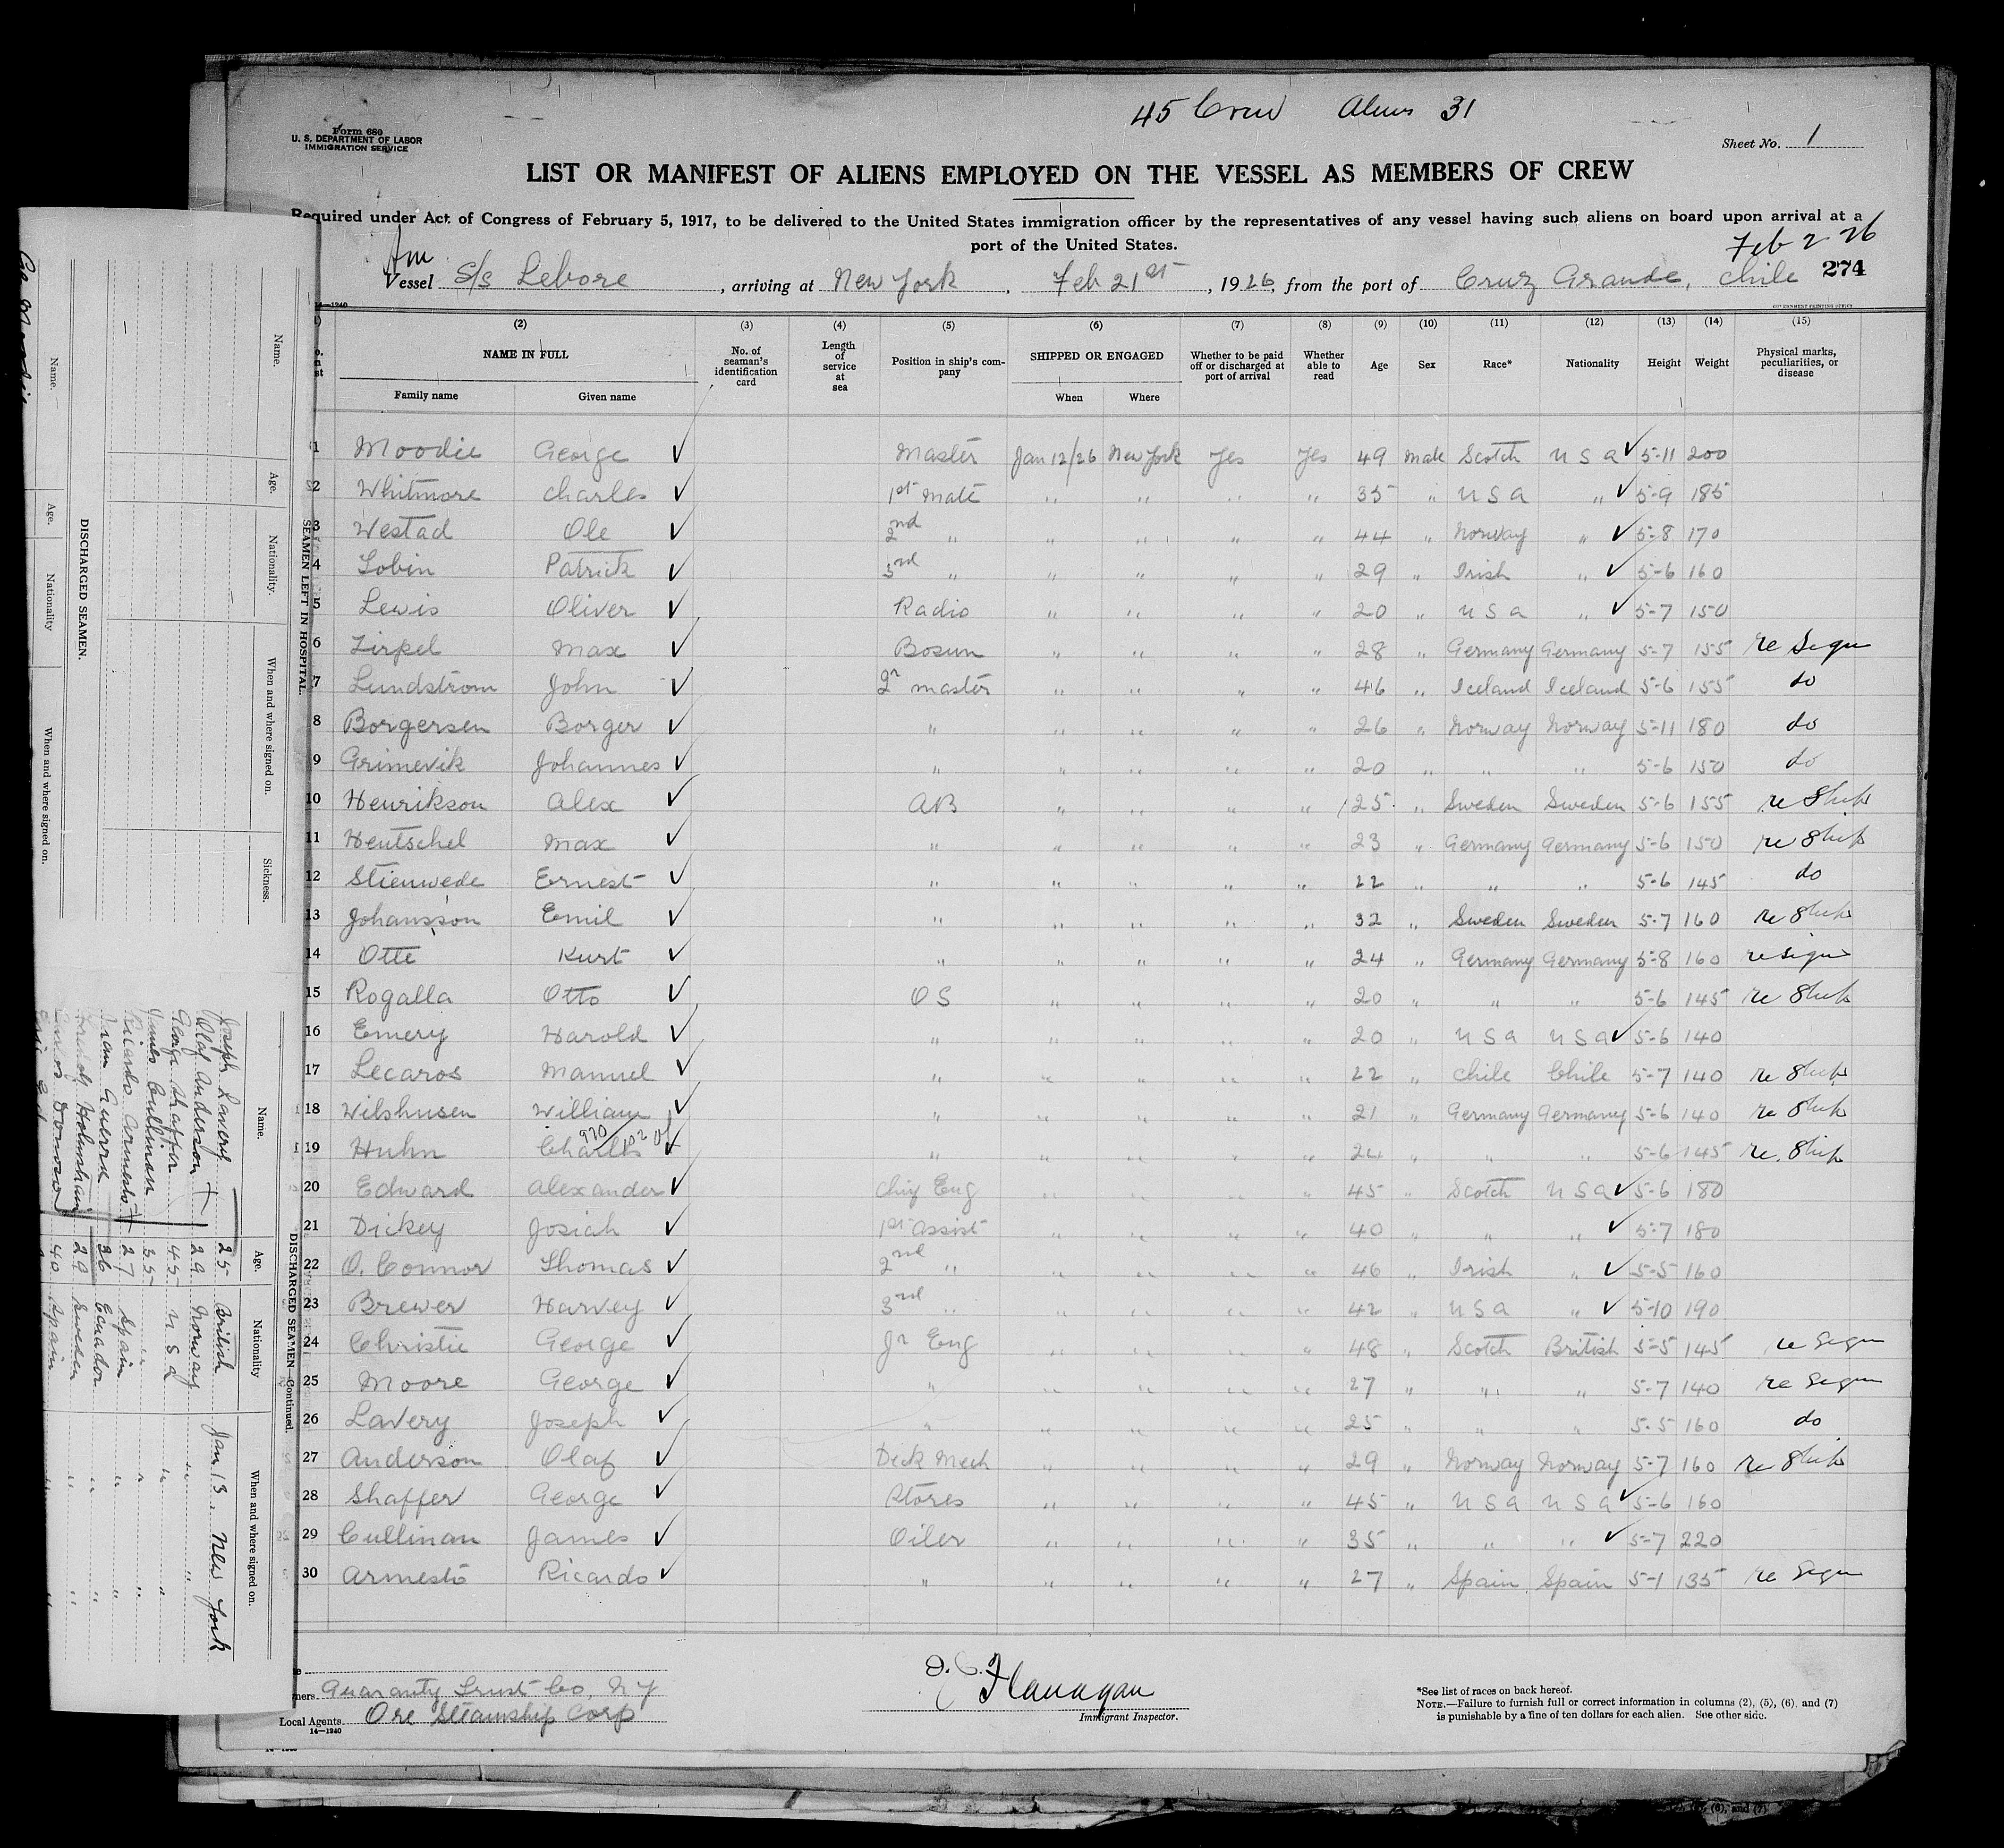 45 Crew Aliens 31
Form 680
U. S. DEPARTMENT OF LABOR
IMMIGRATION SERVICE
Sheet No. 1
LIST OR MANIFEST OF ALIENS EMPLOYED ON THE VESSEL AS MEMBERS OF CREW
Required under Act of Congress of February 5, 1917, to be delivered to the United States immigration officer by the representatives of any vessel having such aliens on board upon arrival at a
port of the United States.
Feb 2 26
Am
Vessel S/s Lebore, arriving at New York, Feb 21st, 1926, from the port of Cruz Grande, Chile 274
14—1240
GOVERNMENT PRINTING OFFICE
(2) (3) (4) (5) (6) (7) (8) (9) (10) (11) (12) (13) (14) (15)
NAME IN FULL No. of seaman's identification card Length of service at sea Position in ship's company SHIPPED OR ENGAGED Whether to be paid off or discharged at port of arrival Whether able to read Age Sex Race* Nationality Height Weight Physical marks, peculiarities, or disease
Family name Given name When Where
1 Moodie George ✓ Master Jan 12/26 New York Yes Yes 49 Male Scotch U S A ✓ 5-11 200
2 Whitmore Charles ✓ 1st Mate " " " " 35 " U S A " ✓ 5-9 185
3 Westad Ole ✓ 2nd " " " " " 44 " Norway " ✓ 5-8 170
4 Tobin Patrick ✓ 3rd " " " " " 29 " Irish " ✓ 5-6 160
5 Lewis Oliver ✓ Radio " " " " 20 " U S A " ✓ 5-7 150
6 Zirpel Max ✓ Bosun " " " " 28 " Germany Germany 5-7 155 re Sign
7 Lundstrom John ✓ Qr master " " " " 46 " Iceland Iceland 5-6 155 do
8 Borgersen Borger ✓ " " " " " 26 " Norway Norway 5-11 180 do
9 Grimevik Johannes ✓ " " " " " 20 " " " 5-6 150 do
10 Henrikson Alex ✓ AB " " " " 25 " Sweden Sweden 5-6 155 re Ship
11 Hentschel Max ✓ " " " " " 23 " Germany Germany 5-6 150 re Ship
12 Stienwede Ernest ✓ " " " " " 22 " " " 5-6 145 do
13 Johansson Emil ✓ " " " " " 32 " Sweden Sweden 5-7 160 re Ship
14 Otte Kurt ✓ " " " " " 24 " Germany Germany 5-8 160 re sign
15 Rogalla Otto ✓ O S " " " " 20 " " " 5-6 145 re Ship
16 Emery Harold ✓ " " " " " 20 " U S A U S A ✓ 5-6 140
17 Lecaros Manuel ✓ " " " " " 22 " Chile Chile 5-7 140 re Ship
18 Wilshusen William ✓ " " " " " 21 " Germany Germany 5-6 140 re Ship
19 Huhn Charles ✓ " " " " " 24 " " " 5-6 145 re Ship
20 Edward Alexander ✓ Chief Eng " " " " 45 " Scotch U S A ✓ 5-6 180
21 Dickey Josiah ✓ 1st Assist " " " " 40 " " " ✓ 5-7 180
22 O. Connor Thomas ✓ 2nd " " " " " 46 " Irish " ✓ 5-5 160
23 Brewer Harvey ✓ 3rd " " " " " 42 " U S A " ✓ 5-10 190
24 Christie George ✓ Jr Eng " " " " 48 " Scotch British 5-5 145 re Sign
25 Moore George ✓ " " " " " 27 " " " 5-7 140 re Sign
26 Lavery Joseph ✓ " " " " " 25 " " " 5-5 160 do
27 Anderson Olaf ✓ Deck Mech " " " " 29 " Norway Norway 5-7 160 re Ship
28 Shaffer George ✓ Stores " " " " 45 " U S A U S A ✓ 5-6 160
29 Cullinan James ✓ Oiler " " " " 35 " " " ✓ 5-7 220
30 Armesto Ricardo ✓ " " " " " 27 " Spain Spain 5-1 135 re Sign
Guaranty Trust Co, N Y
Local Agents Ore Steamship Corp
14—1240
Flanagan
Immigrant Inspector.
*See list of races on back hereof.
NOTE.—Failure to furnish full or correct information in columns (2), (5), (6) and (7)
is punishable by a fine of ten dollars for each alien. See other side.
SEAMEN LEFT IN HOSPITAL.
Name. Age. Nationality. When and where signed on. Sickness.
DISCHARGED SEAMEN.
Name. Age. Nationality When and where signed on.
DISCHARGED SEAMEN—Continued.
Name. Age. Nationality When and where signed on.
Joseph Lavery 25 British Jan 13 New York
Olaf Anderson 29 Norway " "
George Shaffer 45 U S A " "
James Cullinan 35 " " "
Ricardo Armesto 27 Spain " "
Juan Guerra 36 Ecuador " "
Holmsham 29 Sweden " "
Donoso 40 Spain " "